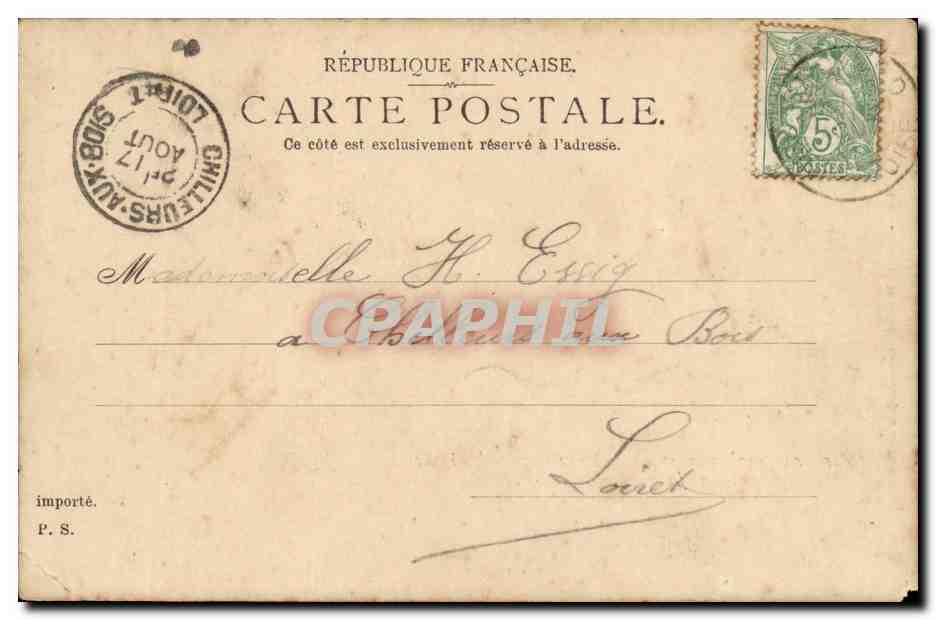 RÉPUBLIQUE FRANÇAISE.
CARTE POSTALE.
Ce côté est exclusivement réservé à l'adresse.
CHILLEURS-AUX-BOIS
17
AOUT
LOIRET
5c
POSTES
Mademoiselle H. Essig
a Chilleurs aux Bois
CPAPHIL
Loiret
importé.
P. S.